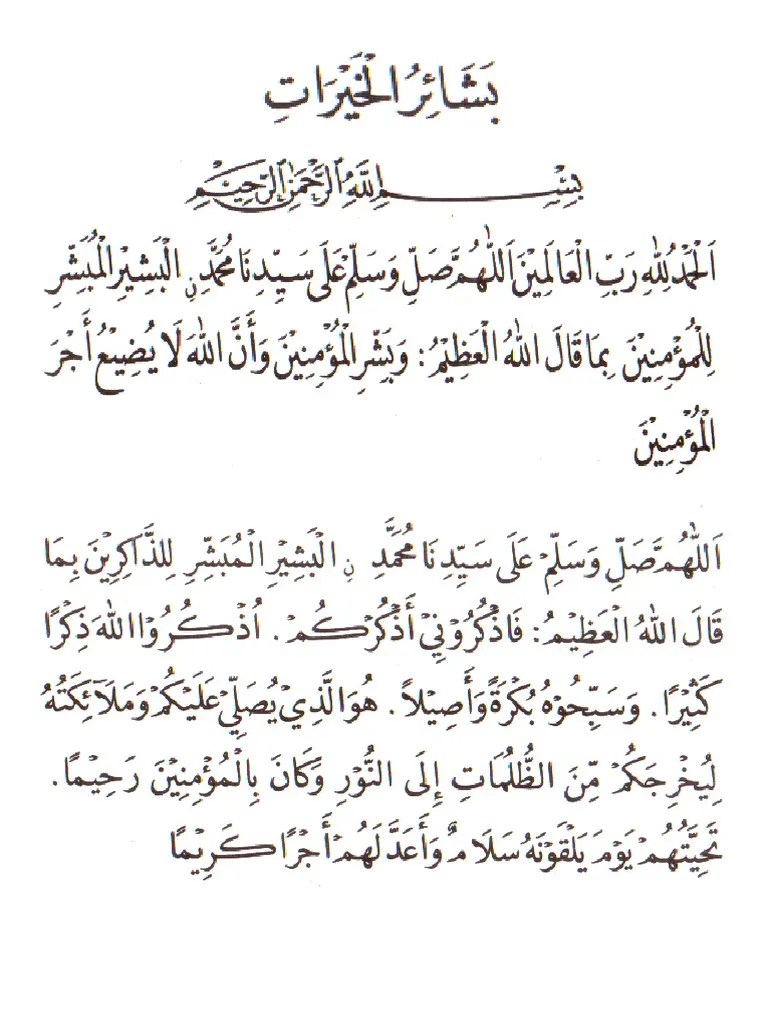 بَشَائِرُ الْخَيْرَاتِ
بِسْمِ اللهِ الرَّحْمٰنِ الرَّحِيْمِ
اَلْحَمْدُ لِلّٰهِ رَبِّ الْعَالَمِيْنَ اَللّٰهُمَّ صَلِّ وَسَلِّمْ عَلَى سَيِّدِنَا مُحَمَّدٍ نِ الْبَشِيْرِ الْمُبَشِّرِ
لِلْمُؤْمِنِيْنَ بِمَا قَالَ اللهُ الْعَظِيْمُ: وَبَشِّرِ الْمُؤْمِنِيْنَ وَأَنَّ اللهَ لَا يُضِيْعُ أَجْرَ
الْمُؤْمِنِيْنَ
اَللّٰهُمَّ صَلِّ وَسَلِّمْ عَلَى سَيِّدِنَا مُحَمَّدٍ نِ الْبَشِيْرِ الْمُبَشِّرِ لِلذَّاكِرِيْنَ بِمَا
قَالَ اللهُ الْعَظِيْمُ: فَاذْكُرُوْنِيْ أَذْكُرْكُمْ. اُذْكُرُوْا اللهَ ذِكْرًا
كَثِيْرًا. وَسَبِّحُوْهُ بُكْرَةً وَأَصِيْلاً. هُوَ الَّذِيْ يُصَلِّيْ عَلَيْكُمْ وَمَلَآئِكَتُهُ
لِيُخْرِجَكُمْ مِّنَ الظُّلُمَاتِ إِلَى النُّوْرِ وَكَانَ بِالْمُؤْمِنِيْنَ رَحِيْمًا.
تَحِيَّتُهُمْ يَوْمَ يَلْقَوْنَهُ سَلَامٌ وَأَعَدَّ لَهُمْ أَجْرًا كَرِيْمًا